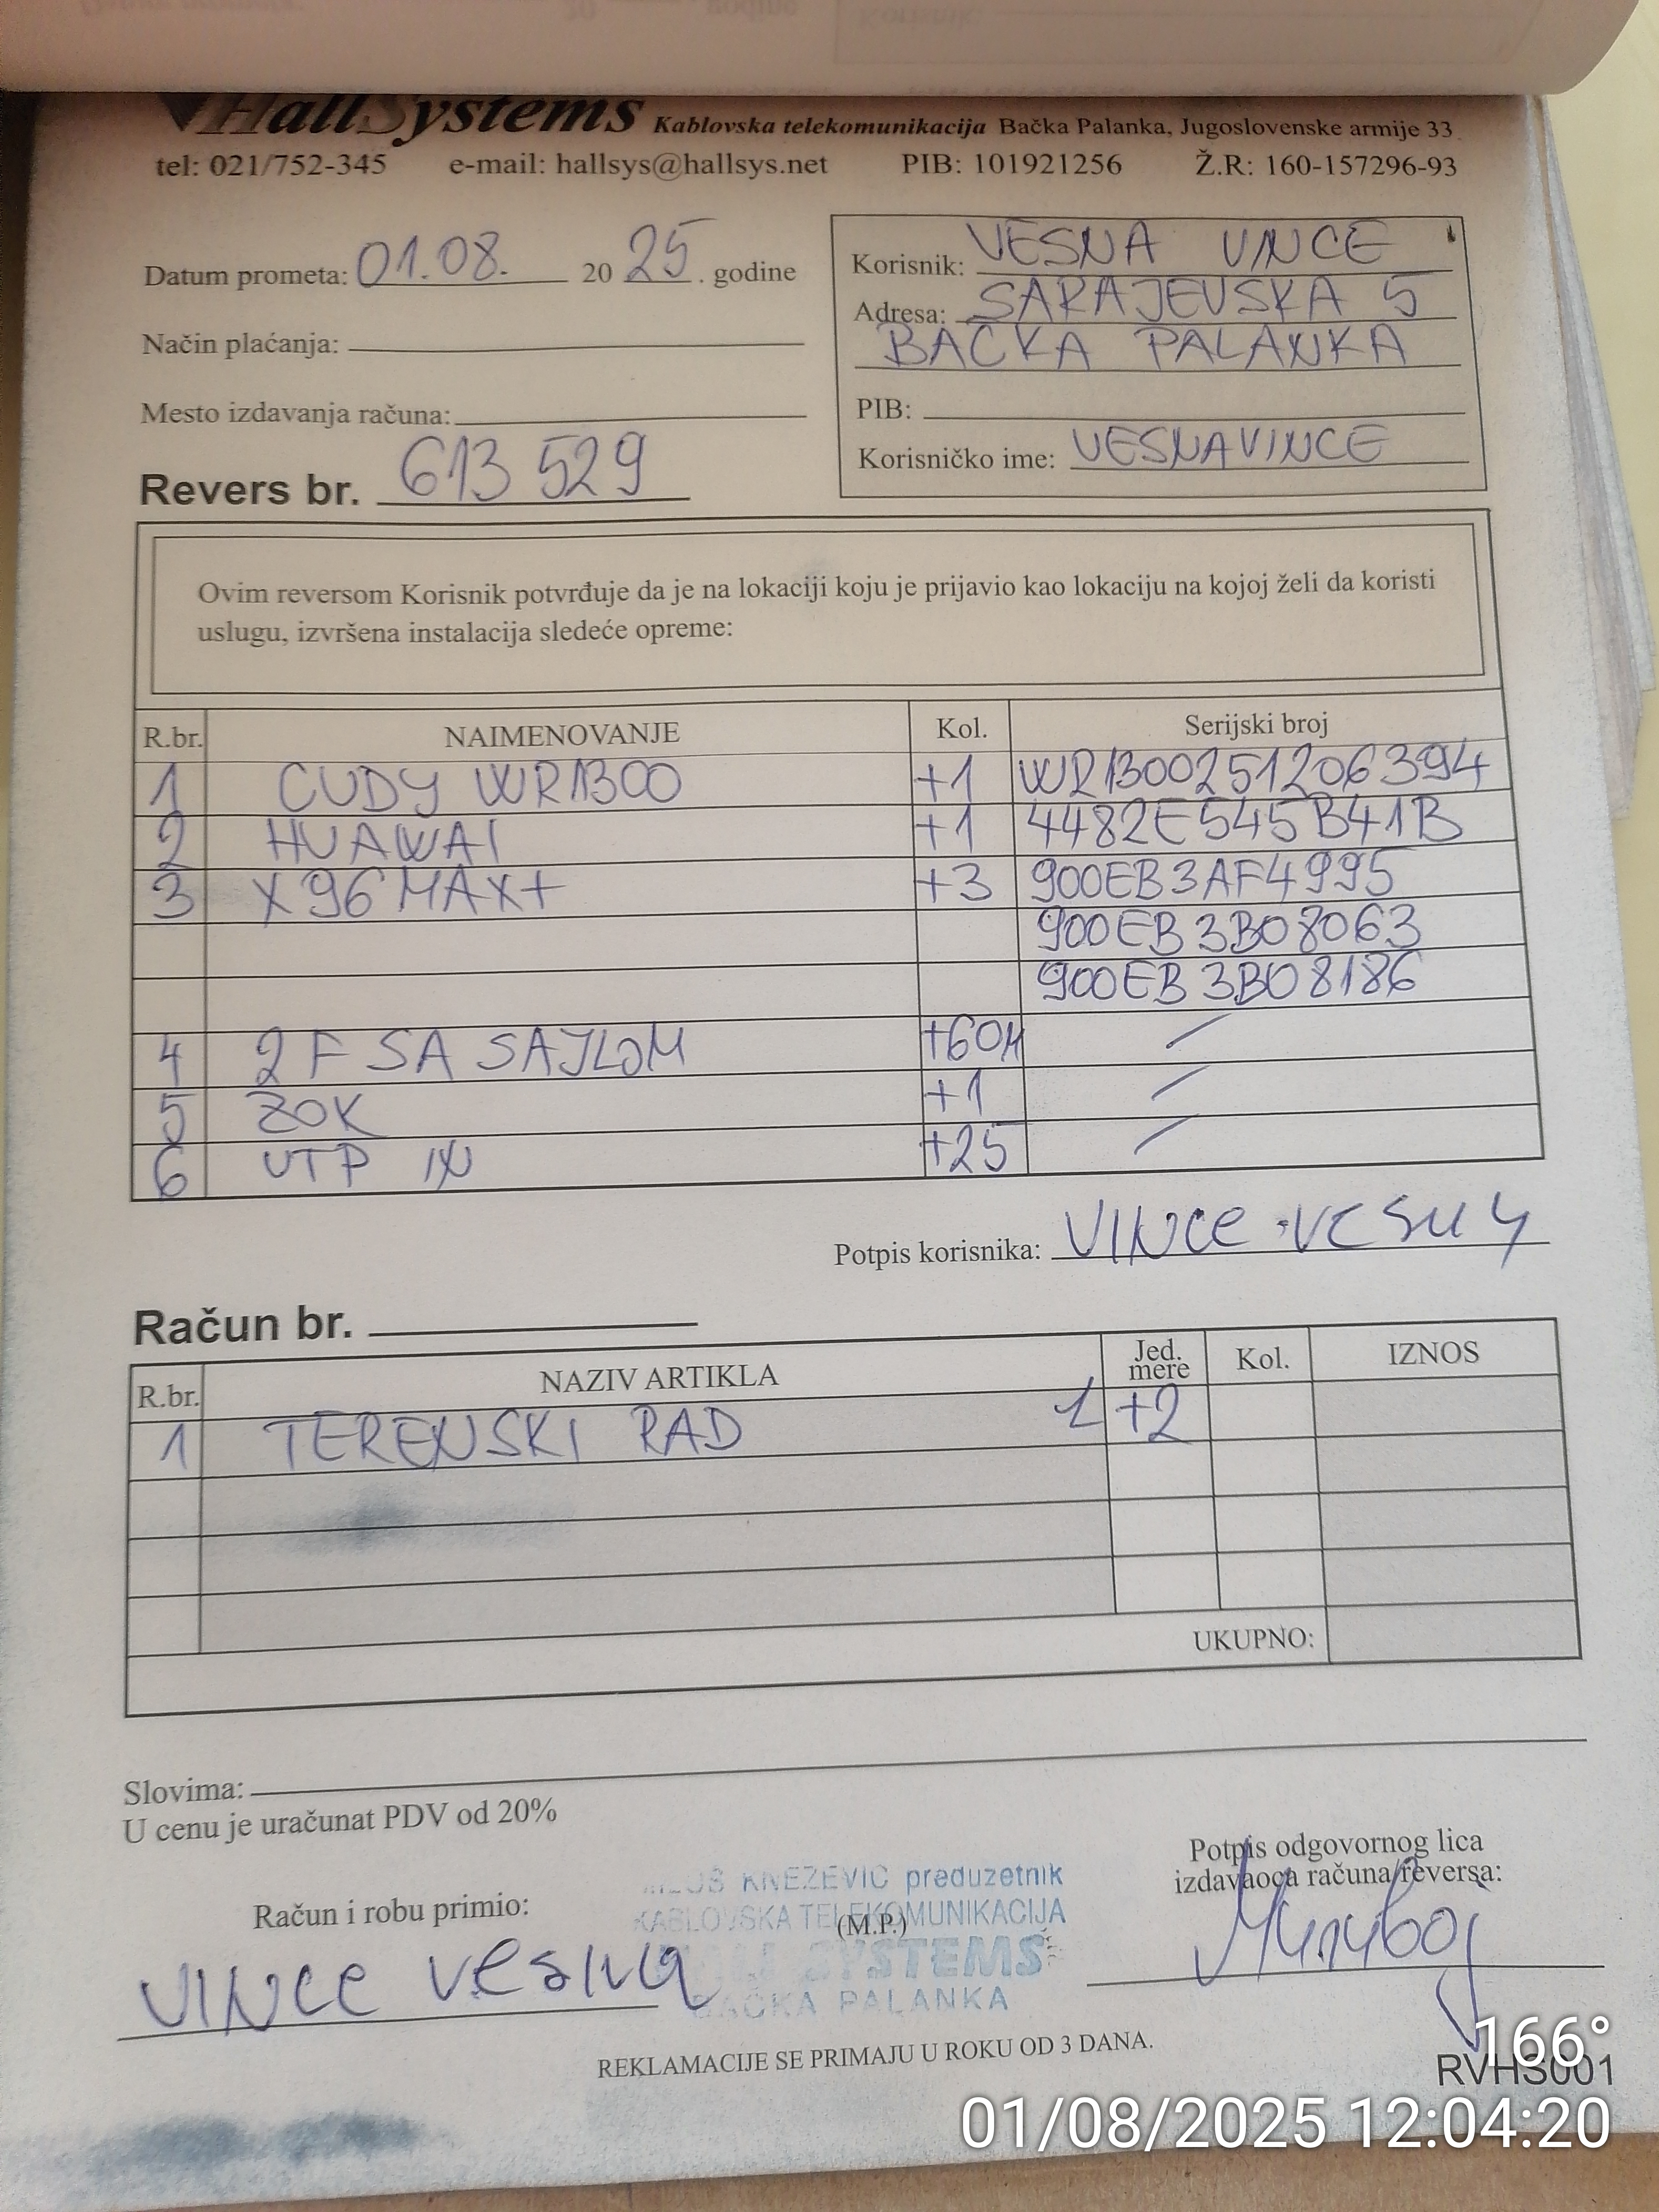 HallSystems Kablovska telekomunikacija Bačka Palanka, Jugoslovenske armije 33
tel: 021/752-345 e-mail: hallsys@hallsys.net PIB: 101921256 Ž.R: 160-157296-93
Datum prometa: 01.08. 20 25. godine
Način plaćanja:
Mesto izdavanja računa:
Revers br. 613 529
Korisnik: VESNA VINCE
Adresa: SARAJEVSKA 5
BAČKA PALANKA
PIB:
Korisničko ime: VESNAVINCE
Ovim reversom Korisnik potvrđuje da je na lokaciji koju je prijavio kao lokaciju na kojoj želi da koristi
uslugu, izvršena instalacija sledeće opreme:
R.br. NAIMENOVANJE Kol. Serijski broj
1 CUDY WR1300 +1 WR1300251206394
2 HUAWAI +1 4482E545B41B
3 X96 MAX+ +3 900EB3AF4995
900EB3B08063
900EB3B08186
4 2F SA SAJLOM +60M /
5 ZOK +1 /
6 UTP IN +25 /
Potpis korisnika: VINCE VESNA
Račun br.
R.br. NAZIV ARTIKLA Jed. mere Kol. IZNOS
1 TERENSKI RAD 1 +2
UKUPNO:
Slovima:
U cenu je uračunat PDV od 20%
Račun i robu primio:
VINCE VESNA
KNEZEVIC preduzetnik
KABLOVSKA TELEKOMUNIKACIJA
(M.P.)
SYSTEMS
BAČKA PALANKA
Potpis odgovornog lica
izdavaoca računa/reversa:
REKLAMACIJE SE PRIMAJU U ROKU OD 3 DANA.
166°
RVHS001
01/08/2025 12:04:20